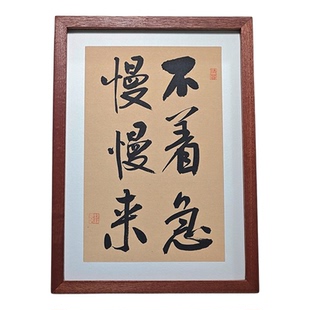 不着急
慢慢来